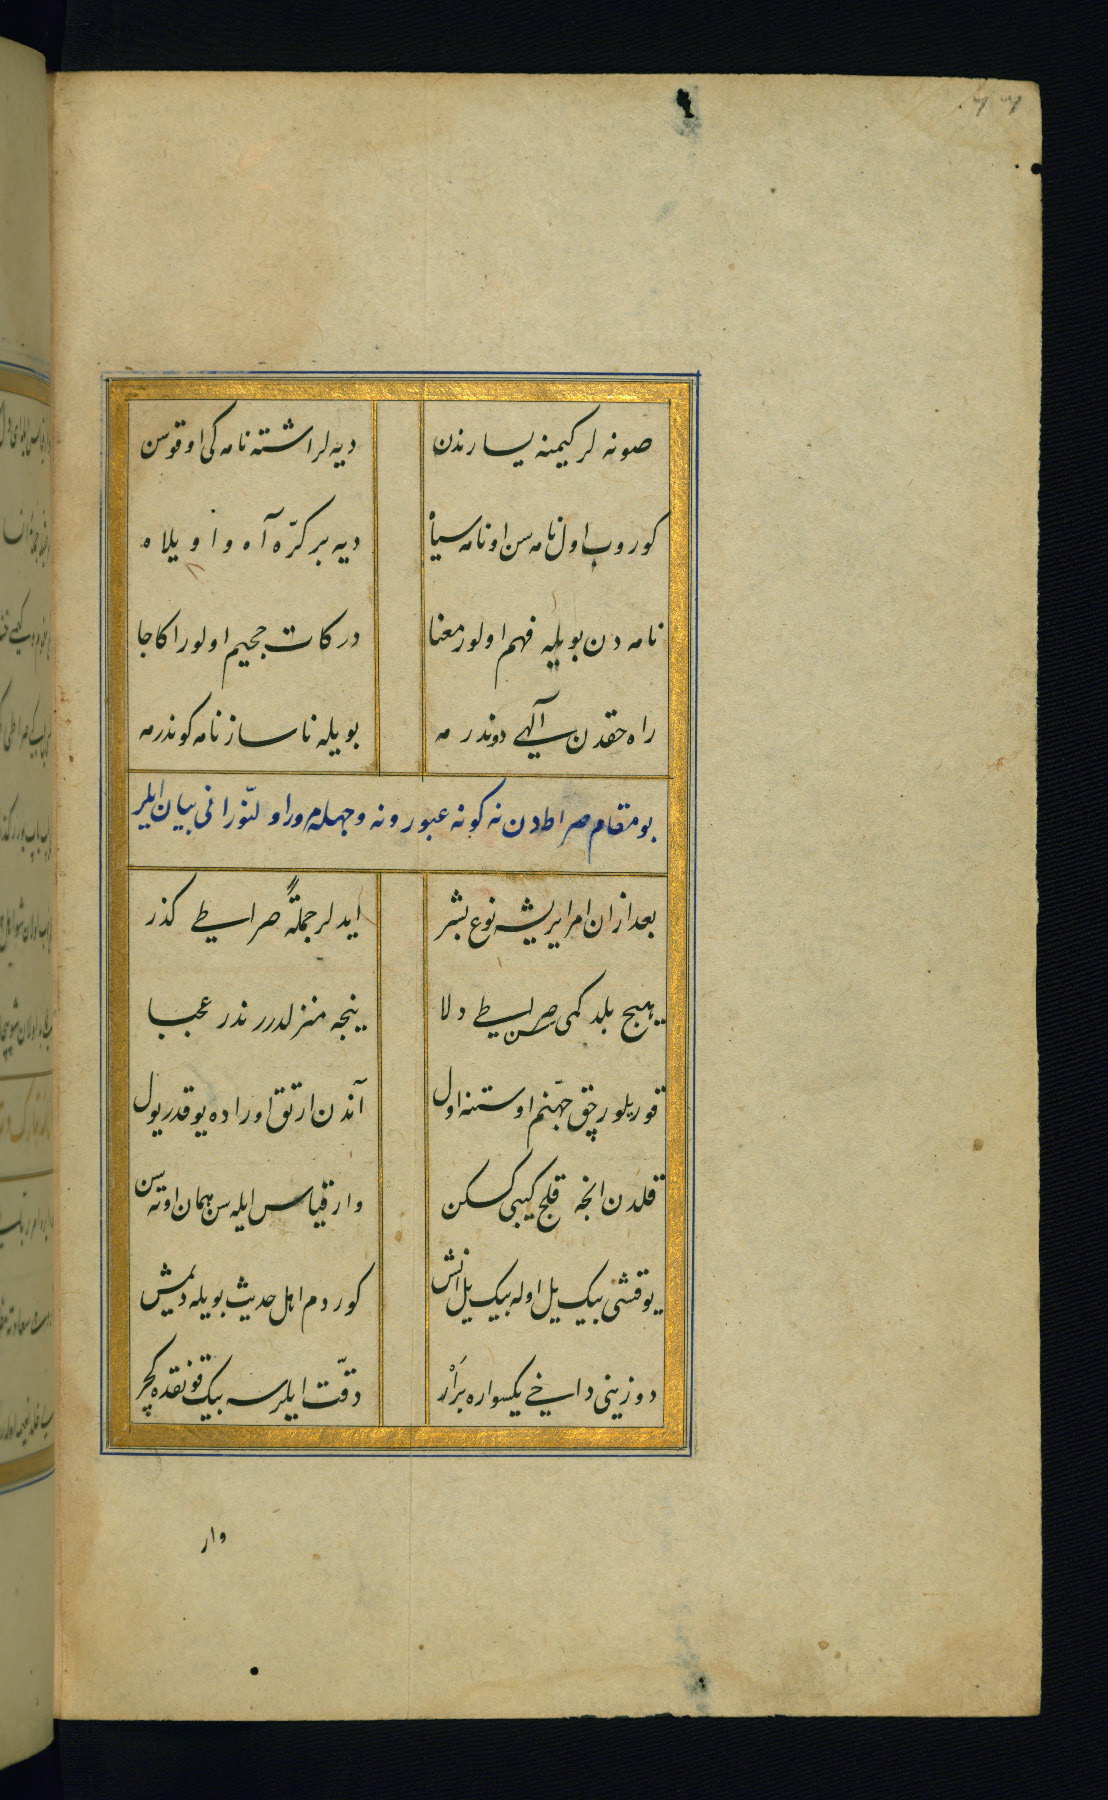 صونه لر كيمنه يسارندن ديه لر اشته نامه كى اوقوسن
كوروب اول نامه سن او نامه سياه ديه بر كرّه آه وا ويلاه
نامه دن بويله فهم اولور معنا دركات جحيم اولور اكا جا
راه حقدن آلهى دوندرمه بويله ناساز نامه كوندرمه
بو مقام صراطدن نه كونه عبور و نه وجهله مرور اولنّورانى بيان ايلر
بعد ازان امر ايريشه نوع بشر ايدلر جملةً صراطى گذر
هيچ بلدكمى سن صراطى دلا نيجه منزلدرر ندر عجبا
قوريلور چق جهنّم اوستنه اول آندن ارتق اوراده يوقدر يول
قلدن انجه قلج كيبى كسكن وار قياس ايله سن همان اوته سن
يوقشى بيك يل اوله بيك يل انش كوردم اهل حديث بويله ديمش
دوزينى داخى يكسواره بَرَاْر دقّت ايلرسه بيك قونقده كچر
وار